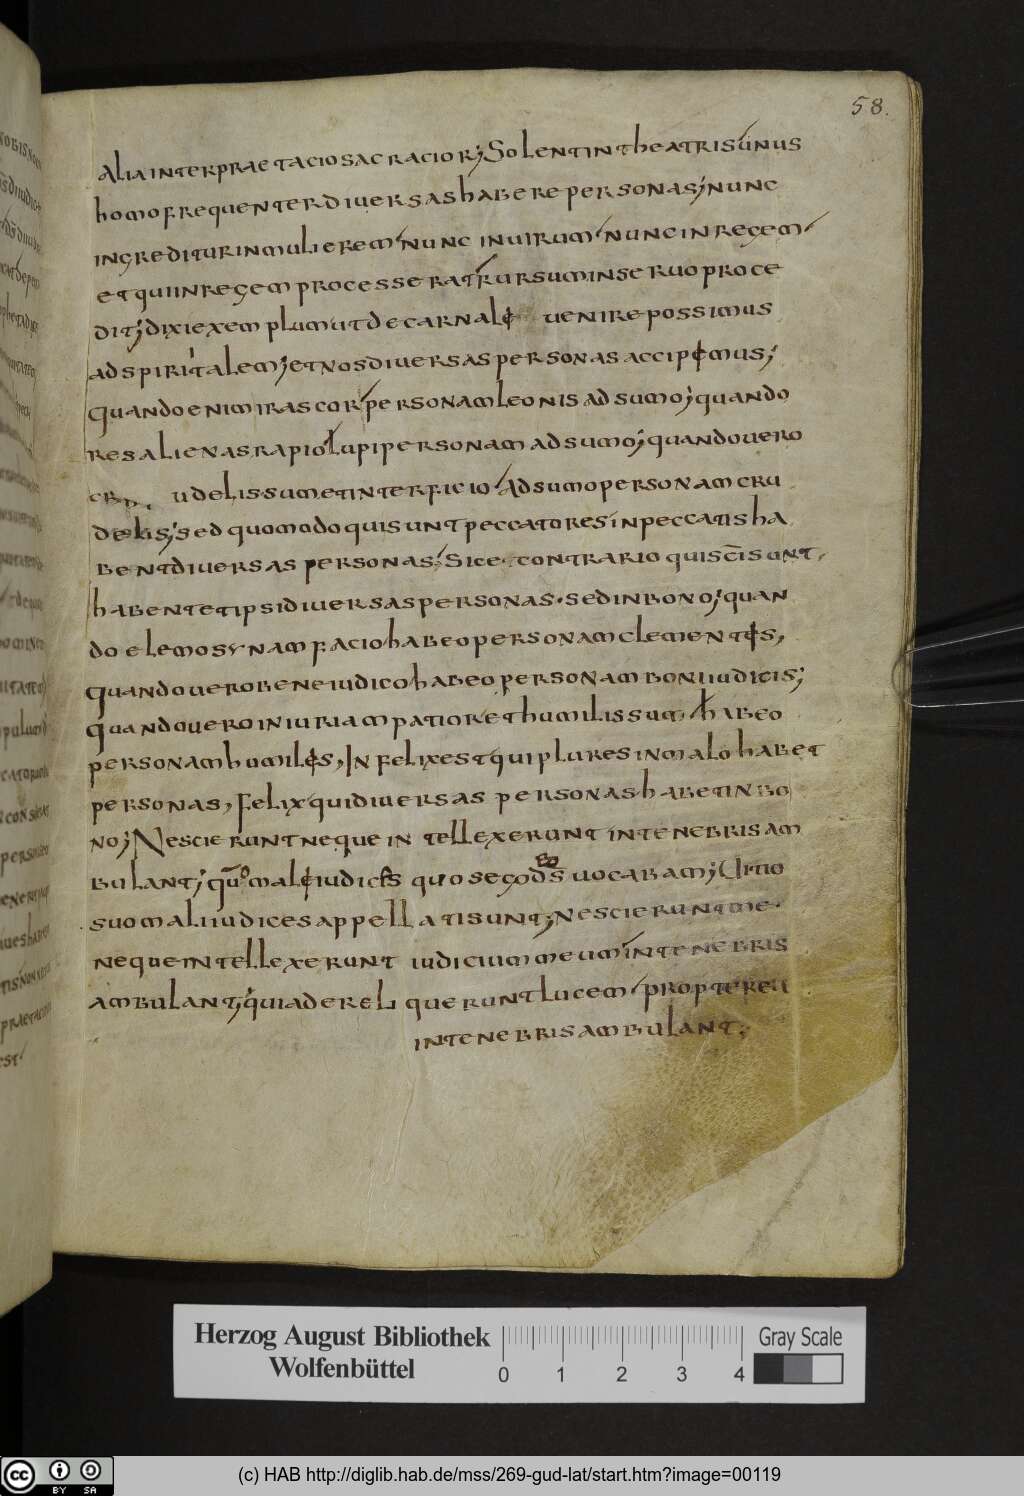 58.
Alia interpraetacio sacracior; Solent in theatris unus
homo frequenter diversas habere personas; nunc
ingreditur in mulierem nunc in virum nunc in regem
et qui in regem processerat rursum in servo proce
dit; dixi exemplum ut de carnalę venire possimus
ad spiritalem; et nos diversas personas accipęmus;
Quando enim irascor personam leonis adsumo; quando
res alienas rapio lupi personam adsumo; quando vero
udelissumet interficio adsumo personam cru
delis; sed quomodo qui sunt peccatores in peccatis ha
bent diversas personas; Sic e contrario qui sc̄i sunt
habent et ipsi diversas personas. sed in bono; quan
do elemosynam facio habeo personam clementęs,
quando vero bene iudico habeo personam boni iudicis;
quando vero iniuriam patior et humilis sum habeo
personam humilęs, Infelix est qui plures in malo habet
personas, Felix qui diversas personas habet in bo
no; Nescierunt neque intellexerunt in tenebris am
bulant; malę iudicęs quos ego d̄s vocabam; Vitio
suo mali iudices appellati sunt; Nescierunt me.
neque intellexerunt iudicium meum in tenebris
ambulant; quia dereliquerunt lucem propterea
in tenebris ambulant;
Herzog August Bibliothek
Wolfenbüttel
0 1 2 3 4
Gray Scale
cc BY SA
(c) HAB http://diglib.hab.de/mss/269-gud-lat/start.htm?image=00119